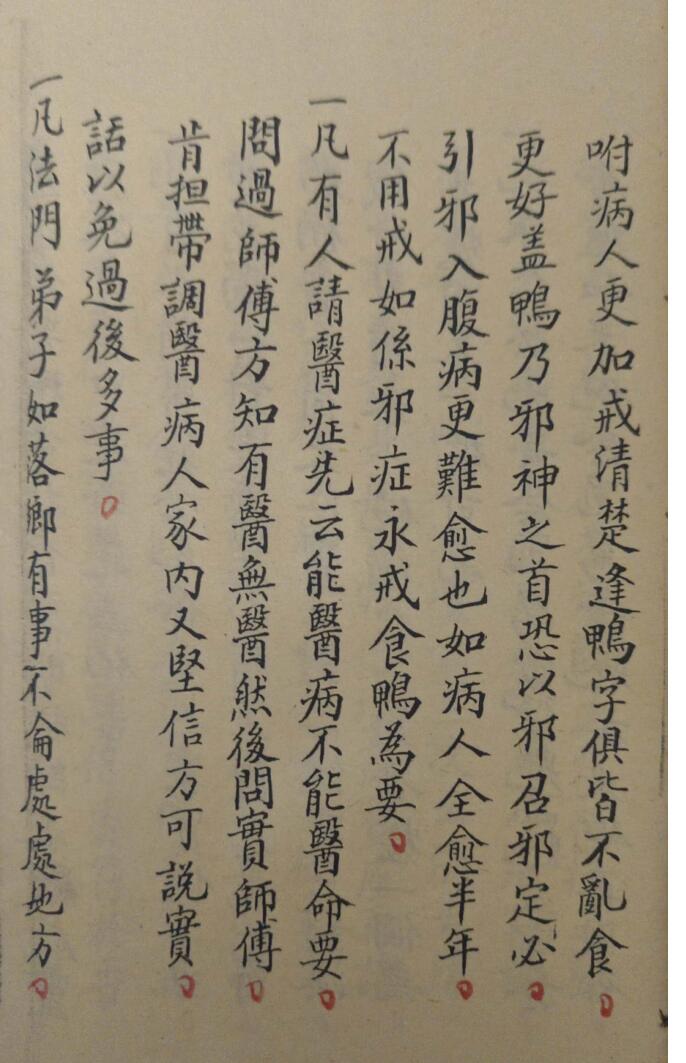 咐病人更加戒清楚逢鴨字俱皆不亂食
更好盖鴨乃邪神之首恐以邪召邪定必
引邪入腹病更難愈也如病人全愈半年
不用戒如係邪症永戒食鴨為要
一凡有人請醫症先云能醫病不能醫命要
問過師傅方知有醫無醫然後問實師傅
肯担帶調醫病人家內又堅信方可説實
話以免過後多事
一凡法門弟子如落鄉有事不侖處處地方